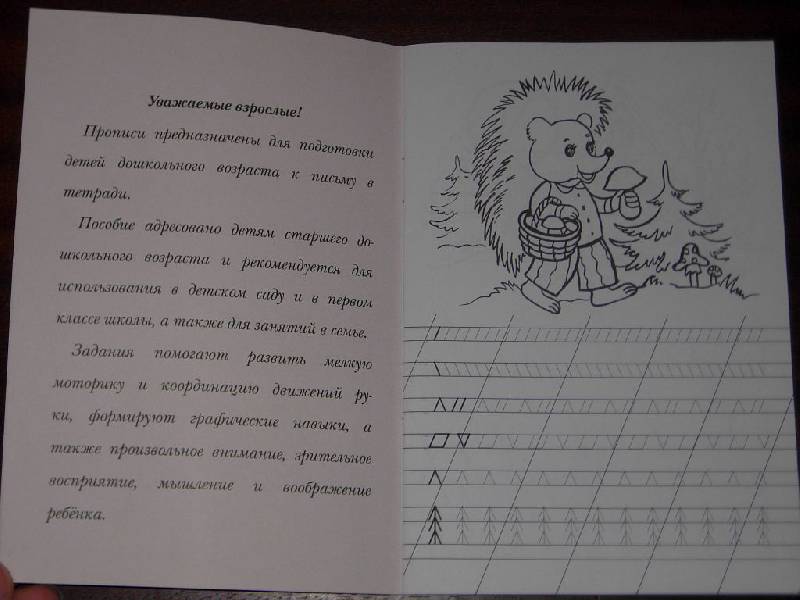 Уважаемые взрослые!
Прописи предназначены для подготовки
детей дошкольного возраста к письму в
тетради.
Пособие адресовано детям старшего до-
школьного возраста и рекомендуется для
использования в детском саду и в первом
классе школы, а также для занятий в семье.
Задания помогают развить мелкую
моторику и координацию движений ру-
ки, формируют графические навыки, а
также произвольное внимание, зрительное
восприятие, мышление и воображение
ребёнка.